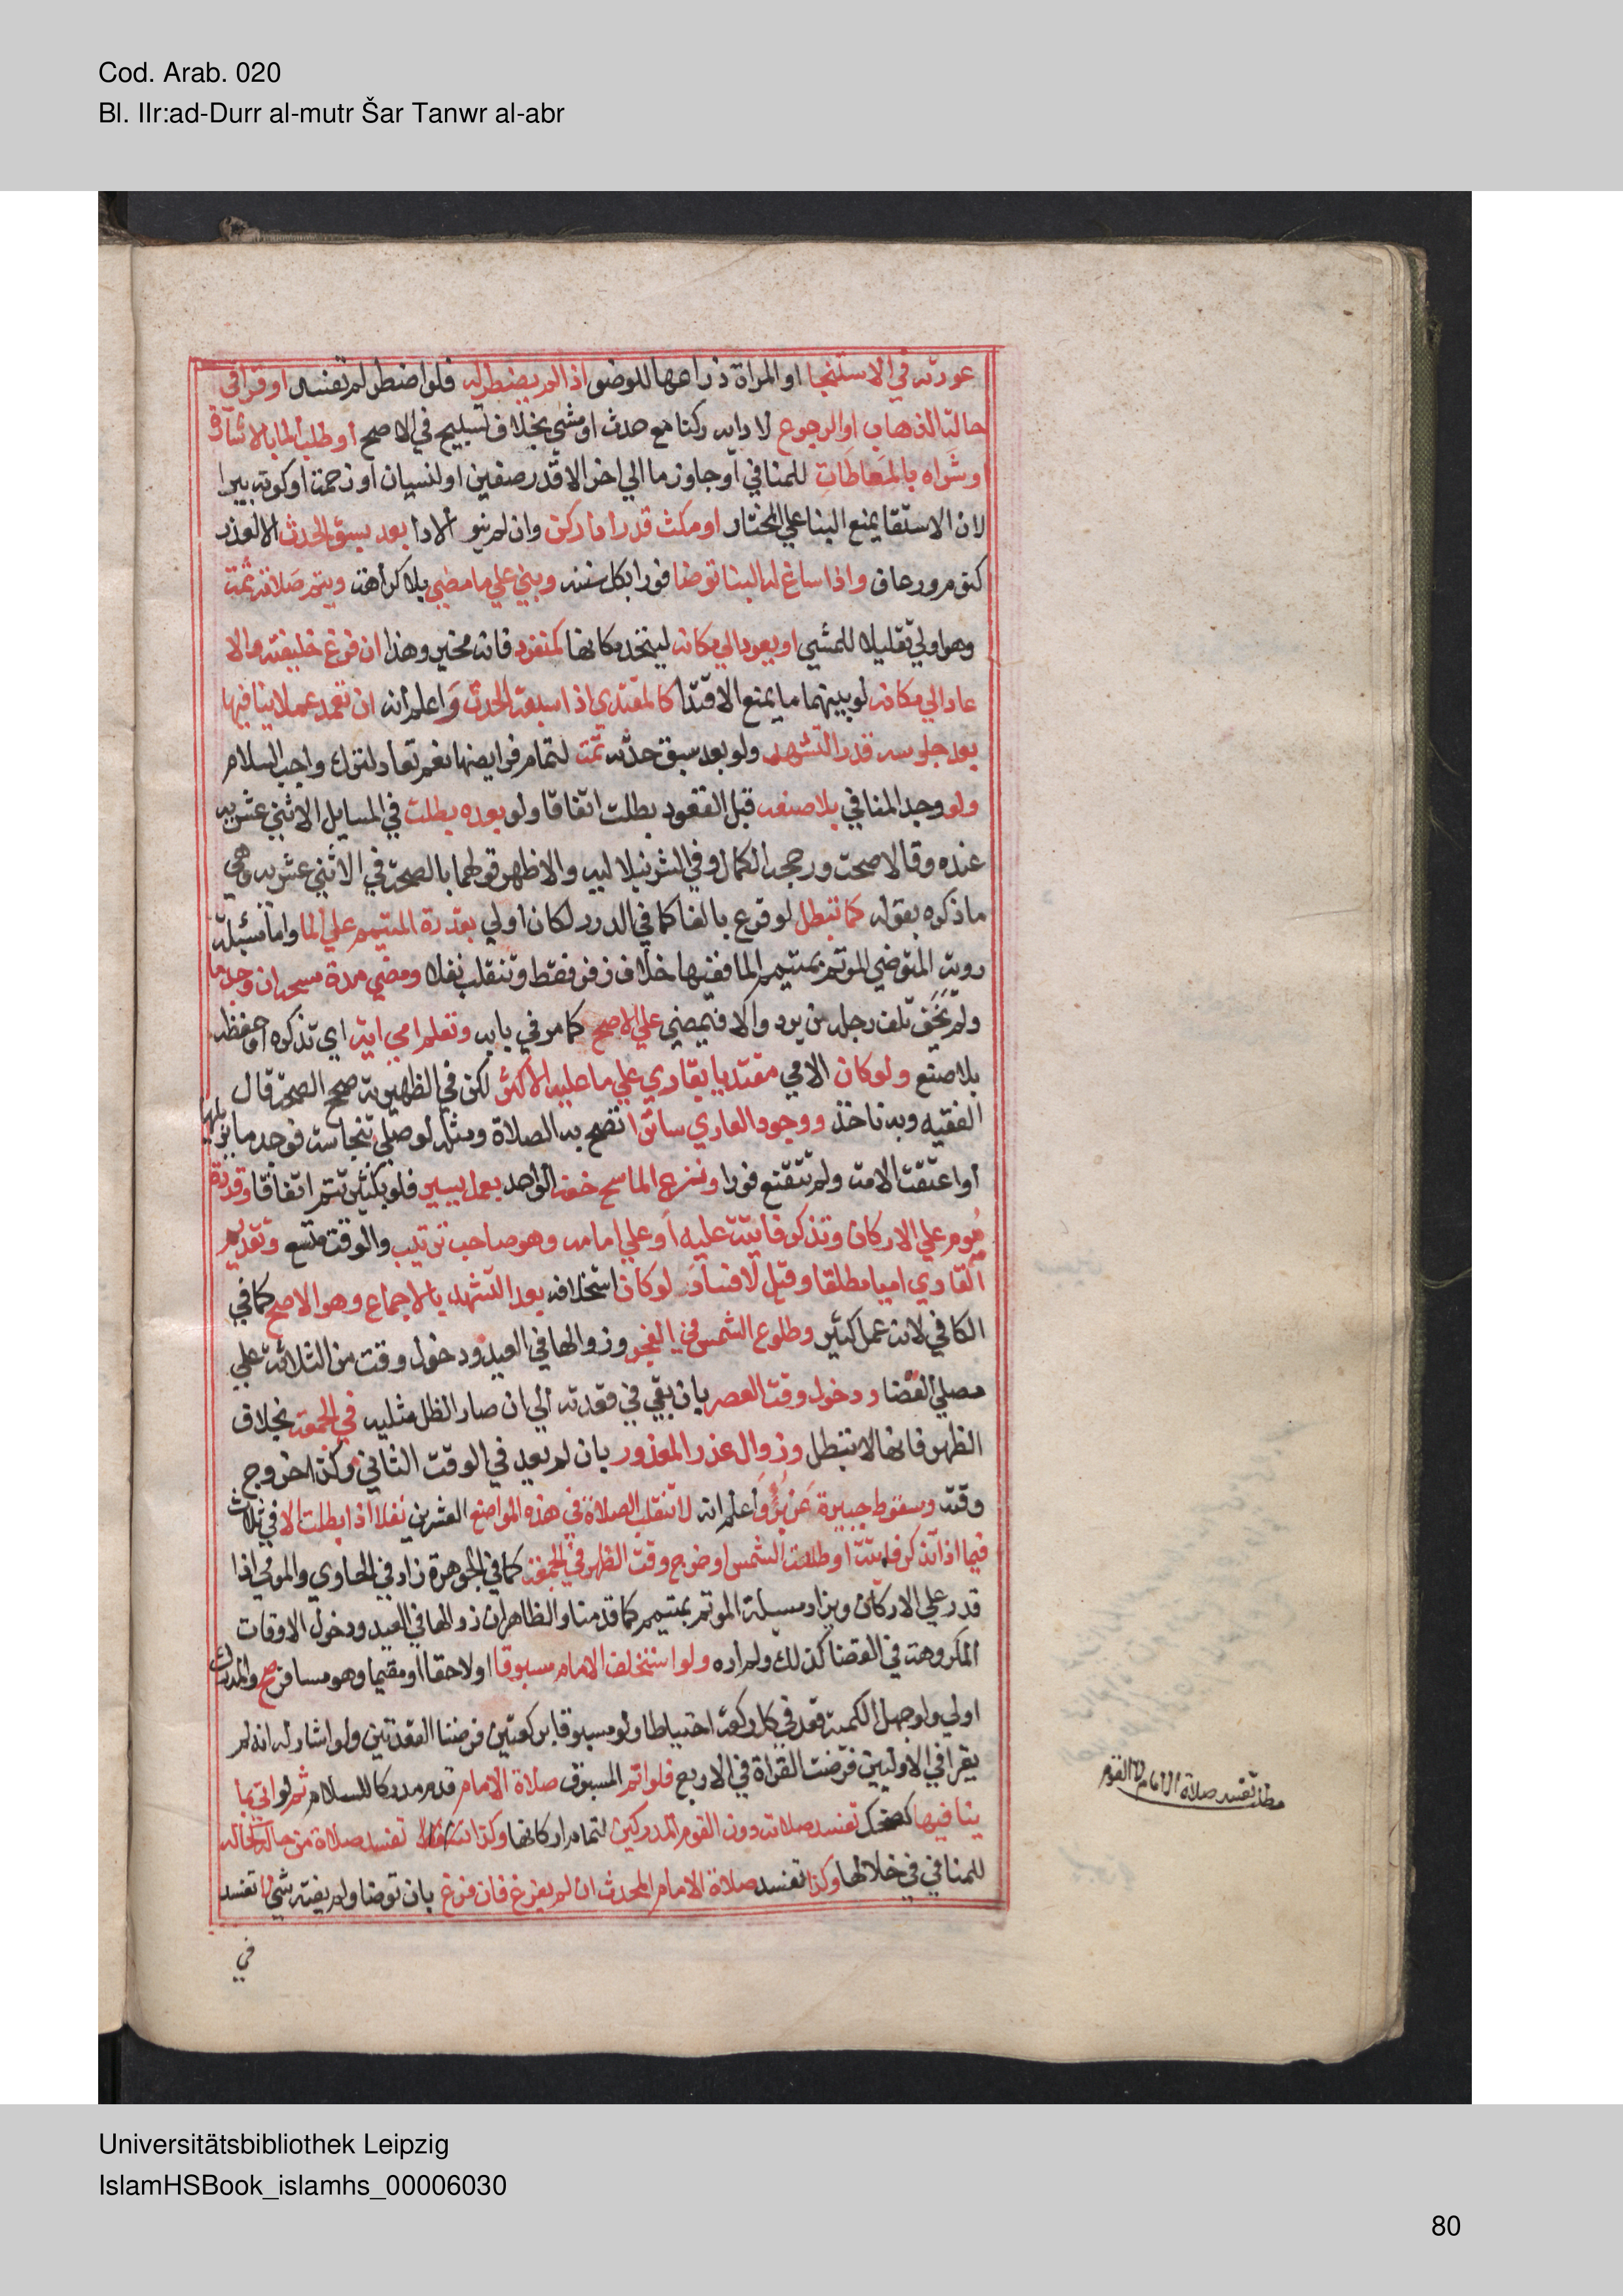 Cod. Arab. 020
Bl. IIr:ad-Durr al-mutr Šar Tanwr al-abr
عورته في الاستنجا او المراة ذراعها للوضو اذا لم يضطر له فلو اضطر لم تفسد او قرا في
حالتا الذهاب او الرجوع لادايه ركنا مع حدث او مشي بخلاف تسبيح في الاصح او طلب الما بالاشارة
او شراه بالمعاطات للمنافي او جاوز ما الي اخر الا قدر صفين او لنسيان او زحمة او كونه بيرا
لان الاستقا يمنع البنا علي المختار او مكث قدر اداركن وان لم ينو الادا بعد سبق الحدث الا لعذر
كنوم ورعاف واذا ساغ له البنا توضا فورا بكل سنه وبني علي ما مضي بلا كراهة ويتم صلاته ثمت
وهو اولي تقليلا للمشي او يعود الي مكانه ليتحد مكانها كمنفرد فانه مخير وهذا ان فرغ خليفته والا
عاد الي مكانه لو بينهما ما يمنع الاقتدا كالمقتدي اذا سبقه الحدث واعلم انه ان تعمد عملا ينافيها
بعد جلوسه قدر التشهد ولو بعد سبق حدثه تمت لتمام فرايضها نعم تعاد لترك واجب السلام
ولو وجد المنافي بلا صنعه قبل القعود بطلت اتفاقا ولو بعده بطلت في المسايل الاثني عشريه
عنده وقالا صحت ورجحه الكمال وفي الشرنبلاليه والاظهر قولهما بالصحة في الاثني عشريه وهي
ما ذكره بقوله كما تبطل لو فرع بالفا كما في الدرر لكان اولي بقدرة المتيمم علي الما واما مسئلة
روية المتوضي الموتم بمتيمم الما ففيها خلاف زفر فقط وتنقلب نفلا ومضي مدة مسحه ان وجد ما
ولم يخف تلف رجله من برد والا فيمضي علي الاصح كما مر في بابه وتعلم امي اية اي تذكره او حفظه
بلا صنع ولو كان الامي مقتديا بقاري علي ما عليه الاكثر لكن في الظهيرية صحح الصحة قال
الفقيه وبه ناخذ ووجود العاري ساترا تصح به الصلاة ومثله لو صلي بنجاسة فوجد ما يزيلها
او اعتقت الامة ولم تتقنع فورا ونزع الماسح خفه الواحد بعمل يسير فلو بكثير تتم اتفاقا وقدرة
موم علي الاركان وتذكر فايتة عليه او علي امامه وهو صاحب ترتيب والوقت متسع وتقديم
القاري اميا مطلقا وقيل لا فساد لو كان استخلافه بعد التشهد بالاجماع وهو الاصح كما في
الكافي لانه عمل كثير وطلوع الشمس في الفجر وزوالها في العيد ودخول وقت من الثلاثة علي
مصلي القضا ودخول وقت العصر بان بقي في قعدته الي ان صار الظل مثليه في الجمعة بخلاف
الظهر فانها لا تبطل وزوال عذر المعذور بان لم يعد في الوقت الثاني وكذا خروج
وقته وسقوط جبيرة عن برؤ واعلم انه لا تنقلب الصلاة في هذه المواضع العشرين نفلا اذا بطلت الا في ثلاث
فيما اذا تذكر فايتة او طلعت الشمس او خرج وقت الظهر في الجمعة كما في الجوهرة زاد في الحاوي والمومي اذا
قدر علي الاركان ويزاد مسيلة الموتم بمتيمم كما قدمنا والظاهر ان زوالها في العيد ودخول الاوقات
المكروهة في القضا كذلك ولم اره ولو استخلف الامام مسبوقا او لاحقا او مقيما وهو مسافر صح والمدرك
اولي ولو جهل الكمية قعد في كل ركعة احتياطا ولو مسبوقا بركعتين فرضنا القعدتين ولو اشار له انه لم
يقرا في الاوليين فرضت القراة في الاربع فلو اتم المسبوق صلاة الامام قدم مدركا للسلام ثم لو اتي بما
ينافيها كضحك تفسد صلاته دون القوم المدركين لتمام اركانها وكذا تفسد صلاة من حاله كحاله
للمنافي في خلالها وكذا تفسد صلاة الامام المحدث ان لم يفرغ فان فرغ بان توضا ولم يفته شي لا تفسد
في
مطلب تفسد صلاة الامام لا القوم
Universitätsbibliothek Leipzig
IslamHSBook_islamhs_00006030
80